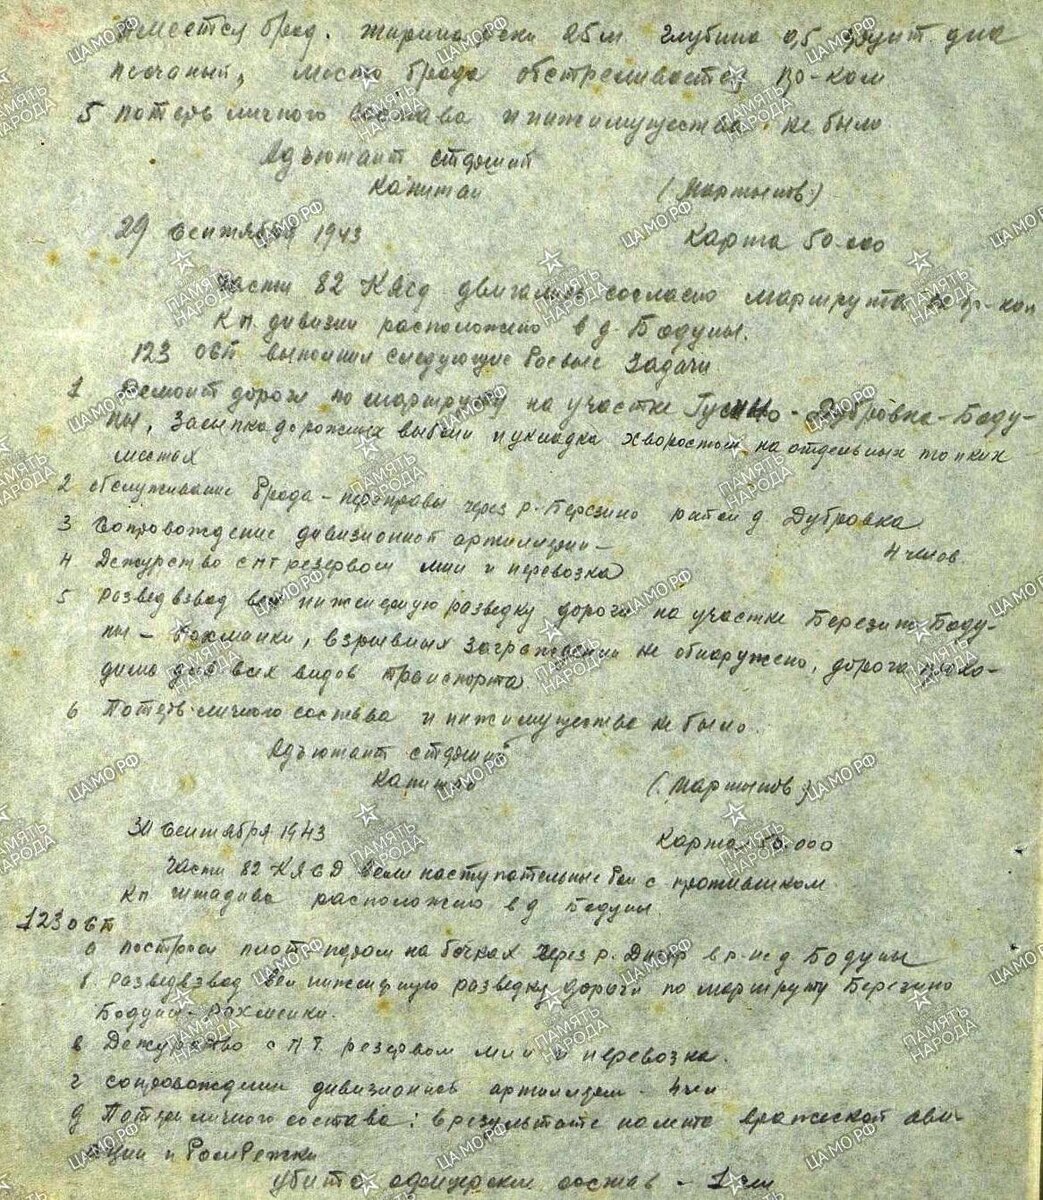 имеется брод. ширина реки 25 м глубина 0,5 грунт дна
песчаный, место брода обстреливается пр-ком
5 потерь личного состава и инжимущества не было
Адъютант старший
Капитан (Мартынов)
29 сентября 1943 Карта 50.000
Части 82 КЯсд двигались согласно маршрута за пр-ком
Кп дивизии расположено в д. Бодуны.
123 ОСБ выполнял следующие боевые задачи
1 Ремонт дороги по маршруту на участке Гусино - Дубровка - Боду-
ны, засыпка дорожных выбоин и укладка хворостом на отдельных топких
местах
2 обслуживание брода - переправы через р. Березино д Дубровка
3 Сопровождение дивизионной артиллерии - 4 челов
4 Дежурство с ПТ резервом мин и перевозка
5 разведвзвод вел инженерную разведку дороги на участке Березино Боду-
ны - Рахманки, взрывных заграждений не обнаружено, дорога прохо-
дима для всех видов транспорта
6 Потерь личного состава и инжимущества не было.
Адъютант старший
Капитан (Мартынов)
30 сентября 1943 Карта 50.000
Части 82 КЯСД вели наступательные бои с противником
Кп штадива расположено в д Бодуны.
123 ОСБ
а построен плот-паром на бочках через р. Днепр в р-не д Бодуны
б. разведвзвод вел инженерную разведку дороги по маршруту Березино
Бодуны - Рахманки.
в Дежурство с ПТ резервом мин и перевозка.
г сопровождении дивизионной артиллерии - 4 чел
д Потери личного состава: в результате налета вражеской авиа-
ции и бомбежки
убито офицерский состав - 1 чел